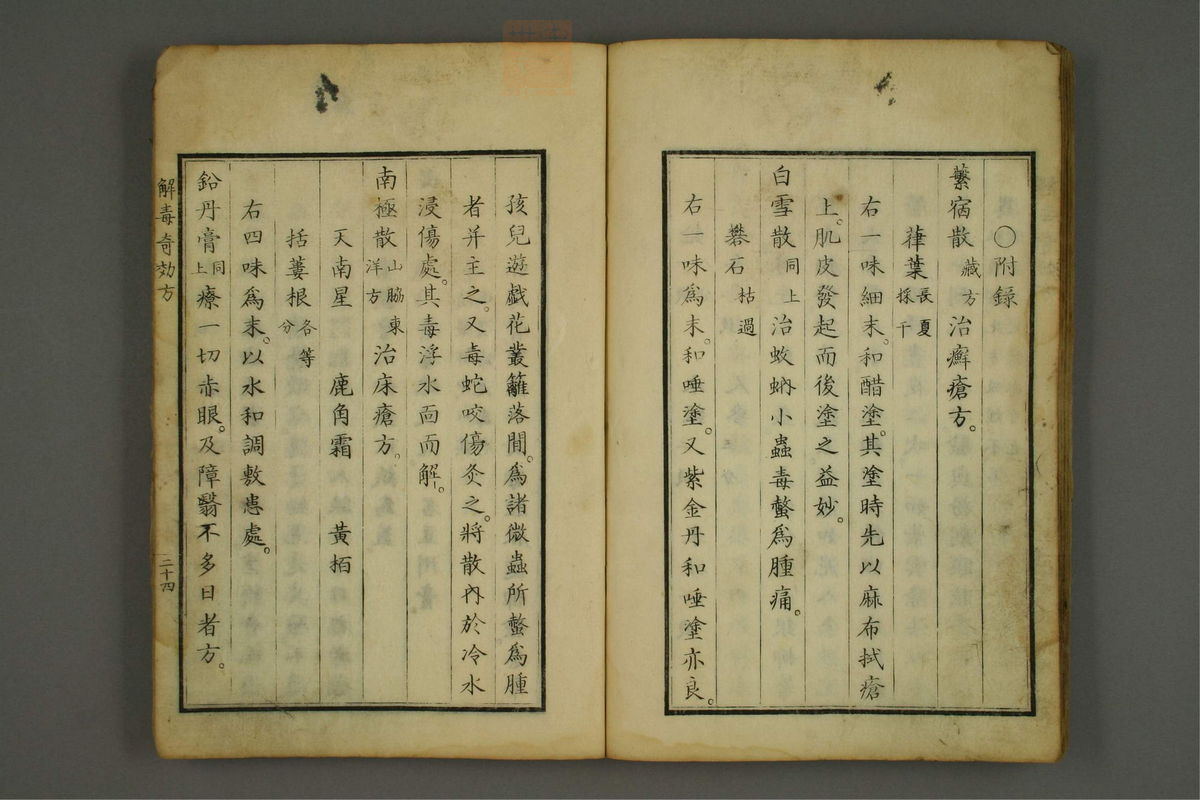 〇附錄
蘩宿散藏方治癬瘡方。
葎葉長夏採干
右一味細末。和醋塗。其塗時先以麻布拭瘡
上。肌皮發起而後塗之益妙。
白雪散同上治蚊蚋小蟲毒螫爲腫痛。
礬石枯過
右一味爲末。和唾塗。又紫金丹和唾塗亦良。
孩兒遊戯花叢籬落間。爲諸微蟲所螫爲腫
者并主之。又毒蛇咬傷灸之。將散內於冷水
浸傷處。其毒浮水面而解。
南極散山脇東洋方治床瘡方。
天南星　鹿角霜　黃栢
括蔞根各等分
右四味爲末。以水和調敷患處。
鉛丹膏同上療一切赤眼。及障翳不多日者方。
解毒奇効方
二十四